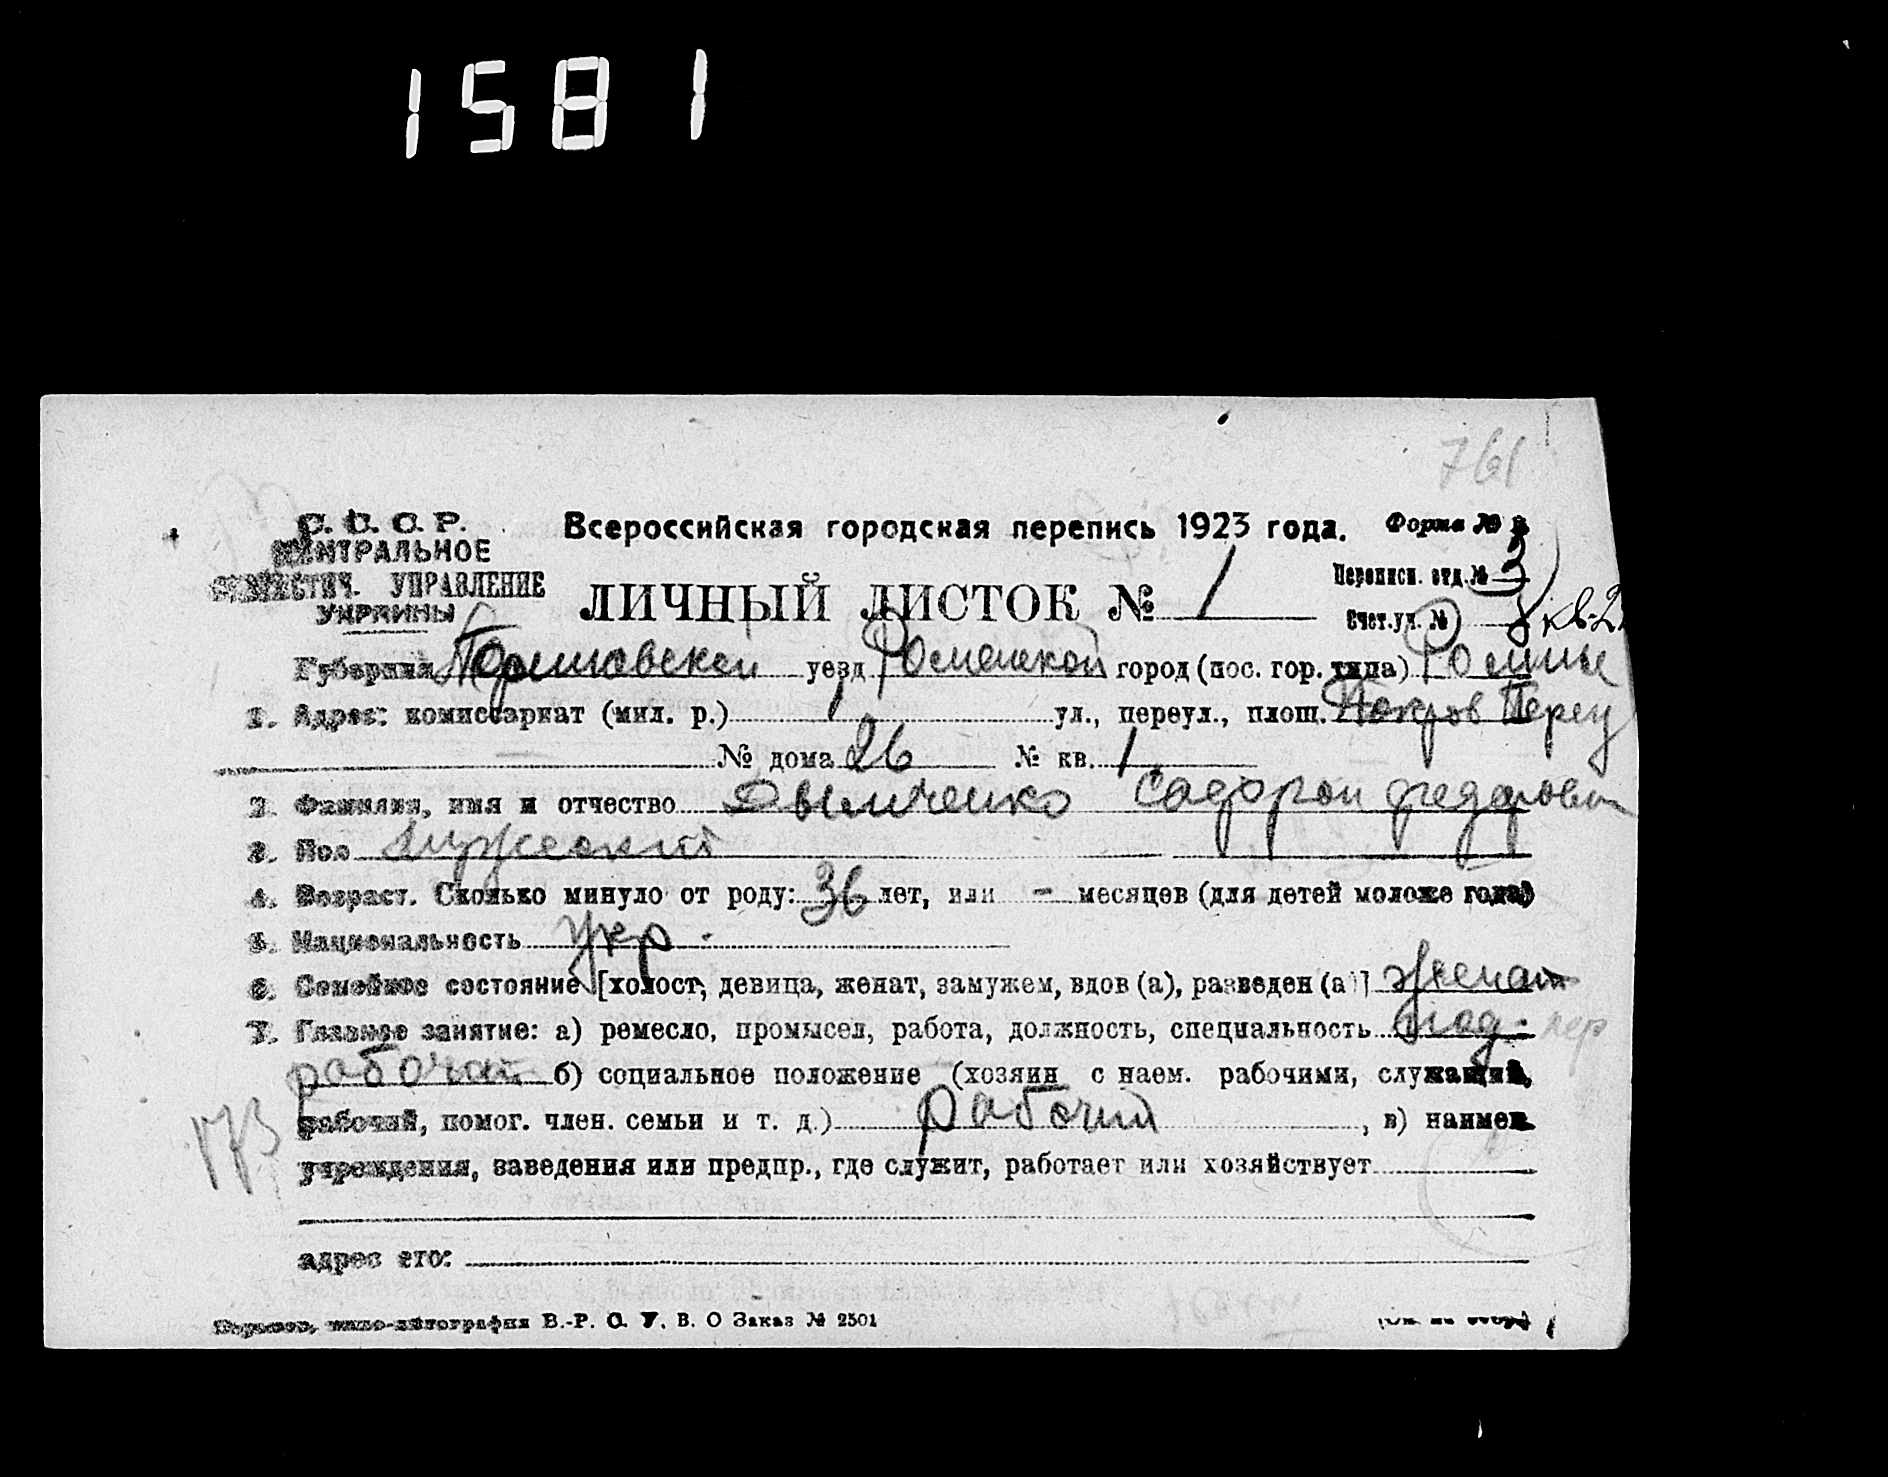 1581
761
С. С. С. Р.
ЦЕНТРАЛЬНОЕ
СТАТИСТИЧ. УПРАВЛЕНИЕ
УКРАИНЫ
Всероссийская городская перепись 1923 года. Форма № 2
ЛИЧНЫЙ ЛИСТОК № 1
Переписн. отд. № 3
Счет. уч. №
Губерния уезд Роменской город (пос. гор. типа) Ромны
1. Адрес: комиссариат (мил. р.) 1 ул., переул., площ. Покров Переу
№ дома 26 № кв. 1
2. Фамилия, имя и отчество
3. Пол мужеский
4. Возраст. Сколько минуло от роду: 36 лет, или - месяцев (для детей моложе года)
5. Национальность Укр.
6. Семейное состояние [холост, девица, женат, замужем, вдов (а), разведен (а)] женат
7. Главное занятие: а) ремесло, промысел, работа, должность, специальность
рабочий б) социальное положение (хозяин с наем. рабочими, служащий,
173
рабочий, помог. член. семьи и т. д.) рабочий, в) наимен.
учреждения, заведения или предпр., где служит, работает или хозяйствует
адрес его:
типо-литография В.-Р. С. У. В. О Заказ № 2501
(См. на обор.)